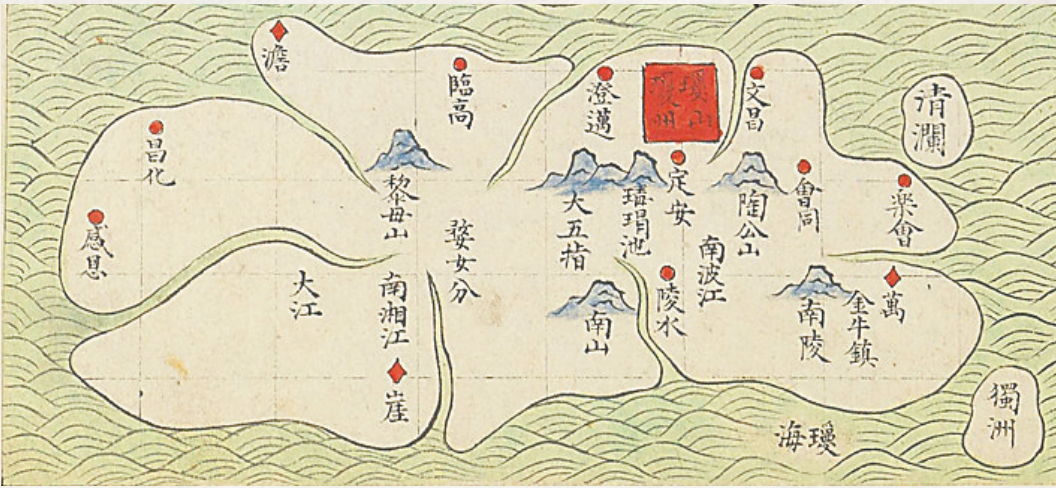 澹
臨高
澄邁
瓊山
瓊州
文昌
清瀾
昌化
感恩
黎母山
婺女分
大五指
瑇瑁池
定安
陶公山
會同
楽會
大江
南湘江
崖
南山
陵水
南波江
南陵
金牛鎮
萬
獨洲
瓊海